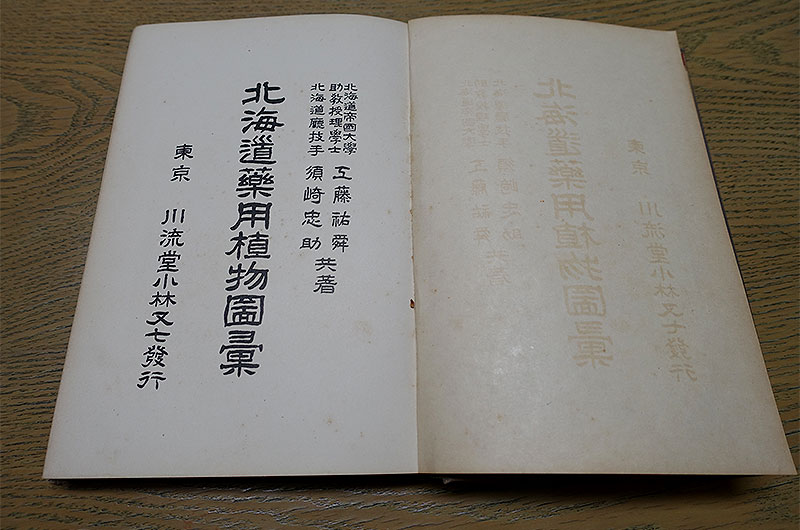 北海道帝国大學
助教授理學士 工藤祐舜
北海道廳技手 須崎忠助
共著
北海道藥用植物圖彙
東京 川流堂小林又七發行